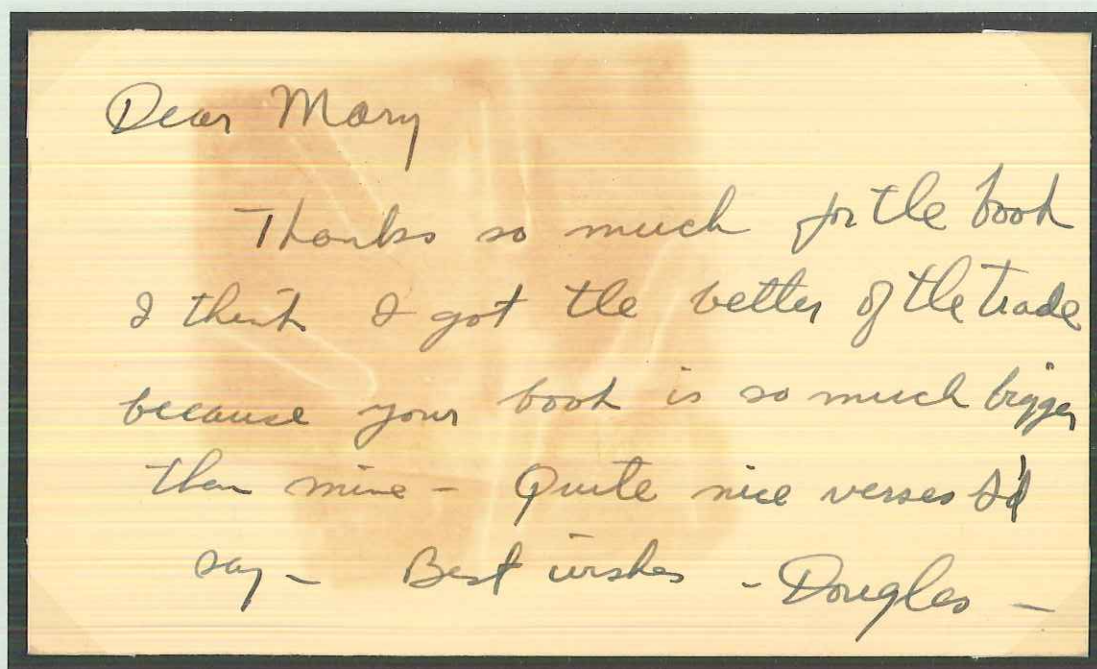 Dear Mary
Thanks so much for the book
I think I got the better of the trade
because your book is so much bigger
than mine - Quite nice verses I'd
say - Best wishes - Douglas -